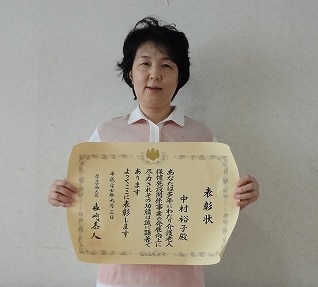 表彰状
中村裕子殿
あなたは多年にわたり介護老人
保健施設関係事業の発展向上に
尽力されその功績は誠に顕著で
あります
よってここに表彰します
平成二十七年九月三日
厚生労働大臣
塩崎恭久